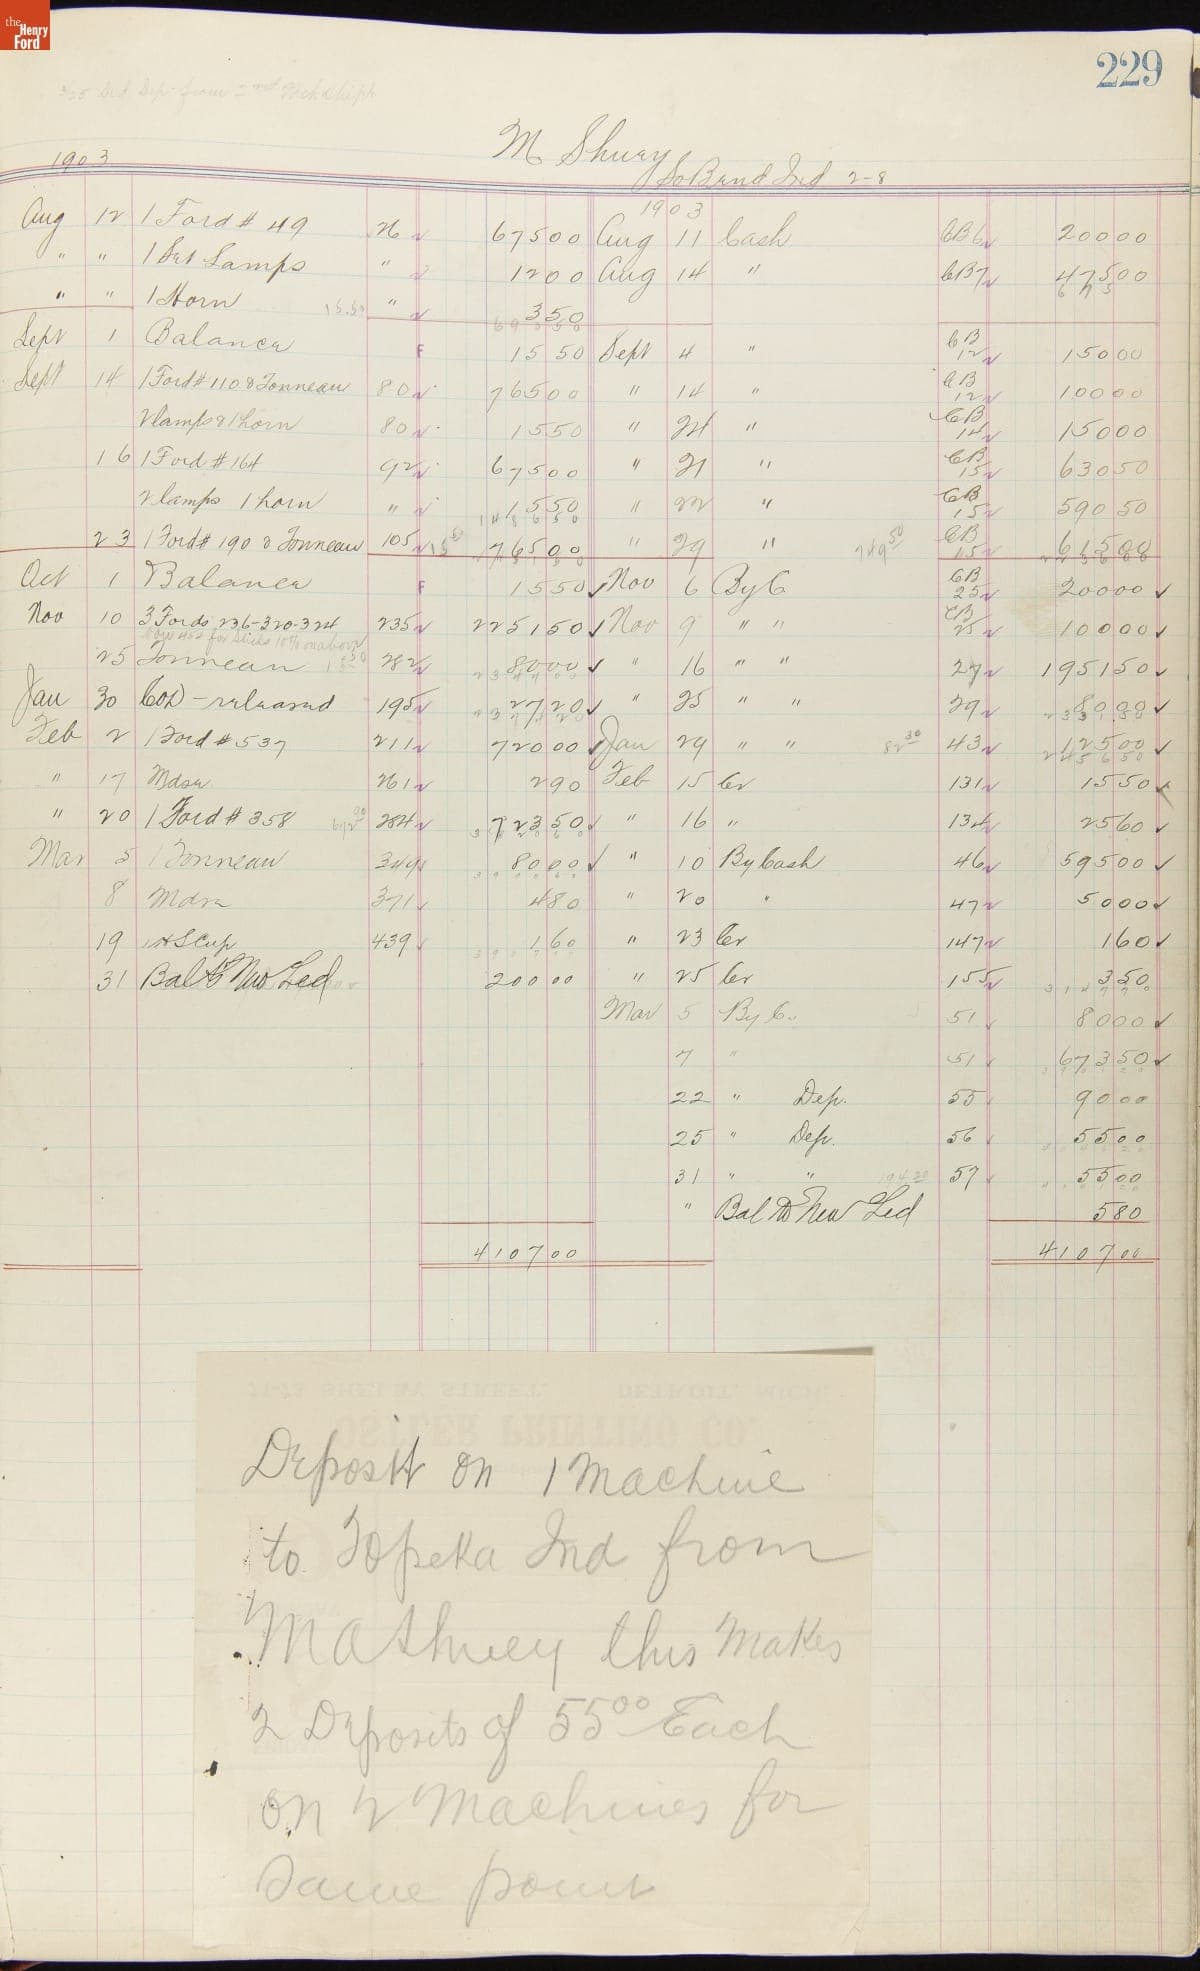 the
Henry
Ford
229
M Shuey
So Bend Ind 2-8
1903
1903
Aug 12 1 Ford # 49 26 675 00 Aug 11 Cash CB6 200 00
" " 1 Set Lamps " 12 00 Aug 14 " CB7 475 00
" " 1 Horn 15.50 " 3 50
690 50 675
Sept 1 Balance F 15 50 Sept 4 " CB 12 150 00
Sept 14 1 Ford # 110 & Tonneau 80 765 00 " 14 " CB 12 100 00
2 lamps & 1 horn 80 15 50 " 21 " CB 14 150 00
16 1 Ford # 164 92 675 00 " 21 " CB 15 630 50
2 lamps 1 horn " 15 50 " 22 " CB 15 590 50
23 1 Ford # 190 & Tonneau 105 15 50 765 00 " 29 " 749 50 CB 15 615 00
Oct 1 Balance F 15 50 Nov 6 By C CB 25 200 00
Nov 10 3 Fords 236-320-324 235 2251 50 Nov 9 " " CB 25 100 00
25 Tonneau 282 80 00 " 16 " " 27 1951 50
Jan 30 COD - released 195 27 20 " 25 " " 29 80 00
Feb 2 1 Ford # 537 211 720 00 Jan 29 " " 82 30 43 125 00
" 17 Mdse 261 2 90 Feb 15 Cr 131 15 50
" 20 1 Ford # 358 284 723 50 " 16 " 134 25 60
Mar 5 1 Tonneau 349 80 00 " 10 By Cash 46 595 00
8 Mdse 371 4 80 " 20 " 47 50 00
19 439 1 60 " 23 Cr 147 1 60
31 Bal to New Led 200 00 " 25 Cr 155 3 50
Mar 5 By C. 51 80 00
7 " 51 673 50
22 " Dep. 55 90 00
25 " Dep. 56 55 00
31 " " 194 20 57 55 00
" Bal to New Led 5 80
4107 00 4107 00
Deposit on 1 Machine
to Topeka Ind from
M A Shuey this makes
2 Deposits of 55 00 Each
on 2 Machines for
same point